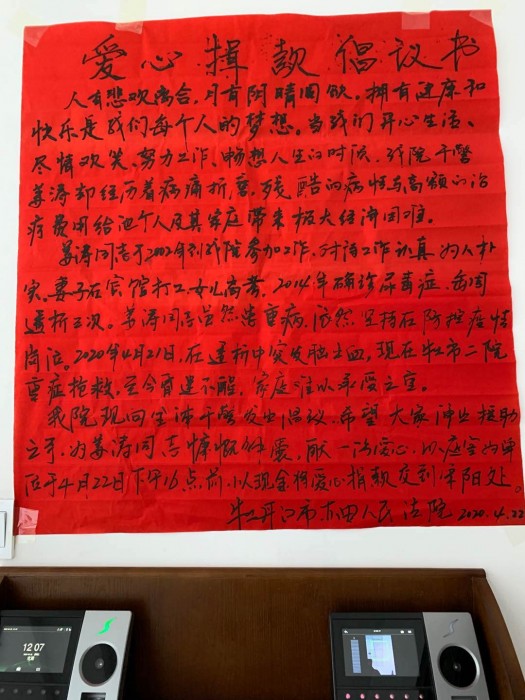 爱心捐款倡议书
人有悲欢离合，月有阴晴圆缺。拥有健康和
快乐是我们每个人的梦想。当我们开心生活、
尽情欢笑、努力工作、畅想人生的时候，我院干警
苏涛却经历着病痛折磨，残酷的病情与高额的治
疗费用给他个人及其家庭带来极大经济困难。
苏涛同志于2002年到我院参加工作，对待工作认真为人朴
实，妻子在宾馆打工，女儿高考。2014年确诊尿毒症，每周
透析三次。苏涛同志虽然患重病，依然坚持在防控疫情
岗位。2020年4月21日，在透析中突发脑出血，现在牡市二院
重症抢救，至今昏迷不醒，家庭难以承受之重。
我院现向全体干警发出倡议，希望大家伸出援助
之手，为苏涛同志慷慨解囊，献一份爱心，以庭室为单
位于4月22日下午16点前，以现金将爱心捐款交到宋阳处。
牡丹江市东四人民法院 2020.4.22
12 07